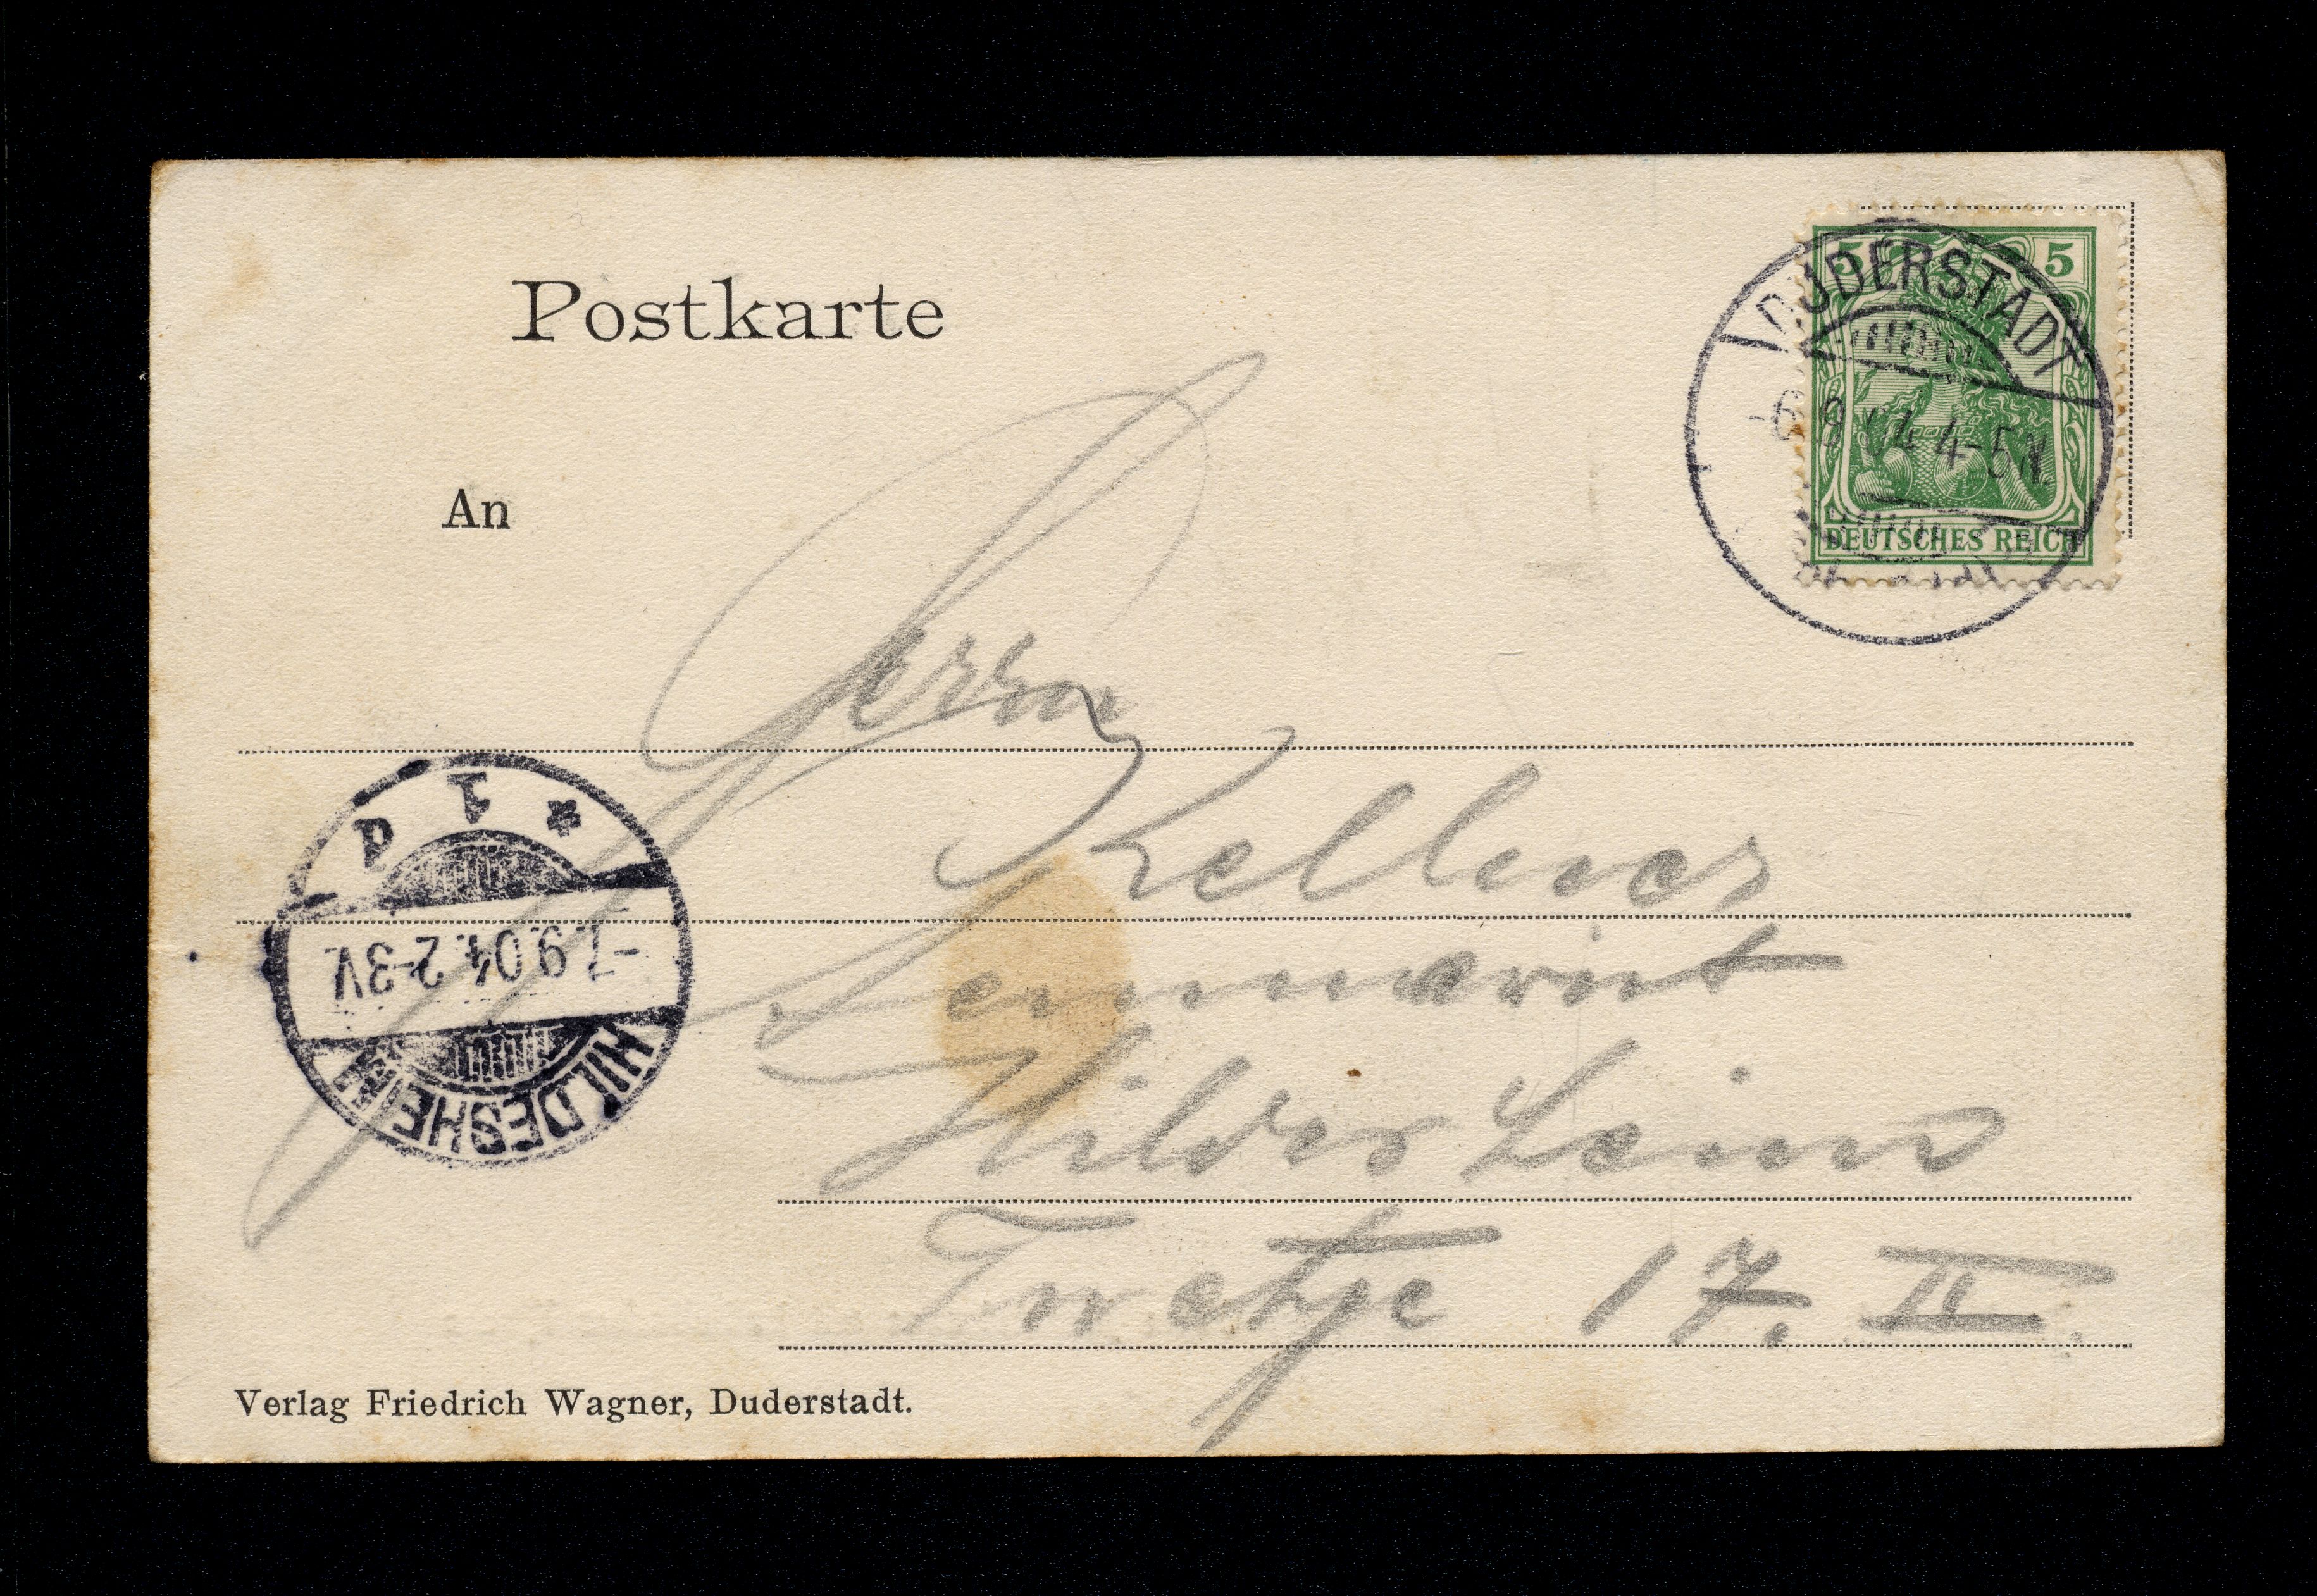 Postkarte
5 5
DUDERSTADT
-6. 9. 04 4-5 N.
DEUTSCHES REICH
An
Herrn
Kellner
Hildesheim
Twetje 17. II.
* 1 d
-7.9.04. 2-3V.
HILDESHEIM
Verlag Friedrich Wagner, Duderstadt.